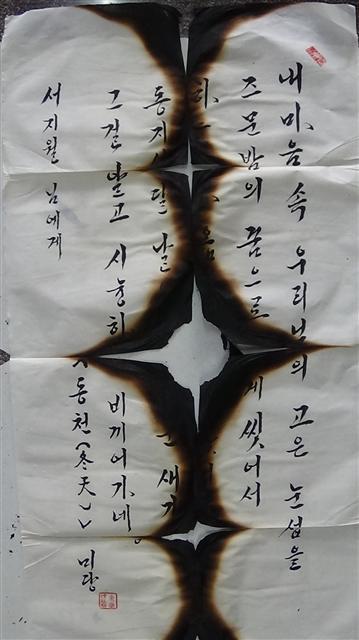 내 마음 속 우리님의 고은 눈섭을
즈문 밤의 꿈으로 게 씻어서
옴
동지 달 날 새가
그걸 알고 시늉하 비끼어 가네。
《동천(冬天)》 미당
서지월 님에게